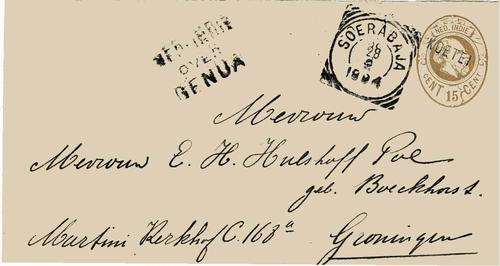 NED. INDIE
OVER
GENUA
SOERABAJA
28
2
1894
NED. INDIE
KOETEI
CENT 15 CENT
Mevrouw
Mevrouw E. H. Hulshoff Pol
geb. Boeckhorst.
Martini Kerkhof C. 168a
Groningen